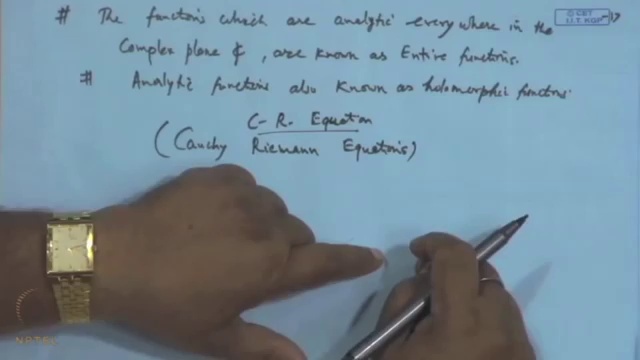 © CET
I.I.T. KGP
# The functions which are analytic everywhere in the
Complex plane ₵, are known as Entire functions.
# Analytic functions also known as holomorphic functions.
C-R. Equation
(Cauchy Riemann Equations)
NPTEL